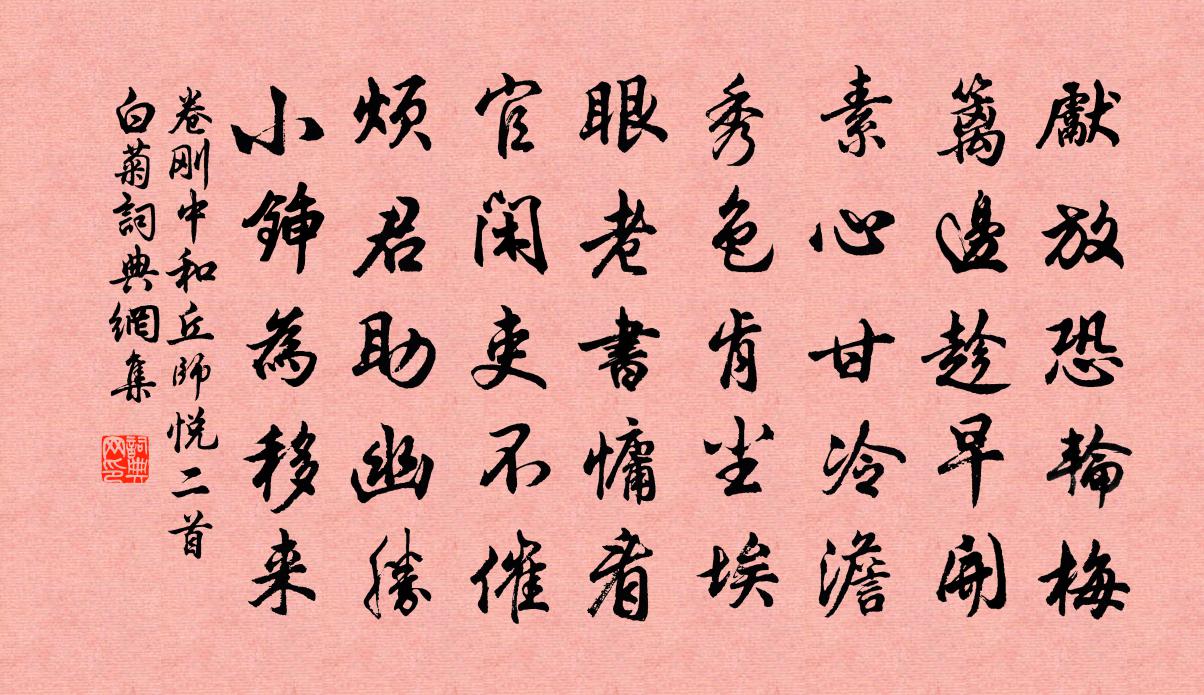 獻放恐輪梅
篱邊趁早開
素心甘冷澹
秀色肯尘埃
眼老書慵看
官閑吏不催
煩君助幽勝
小鍤為移来
卷刚中和丘師悦二首
白菊詞典網集
詞典网印